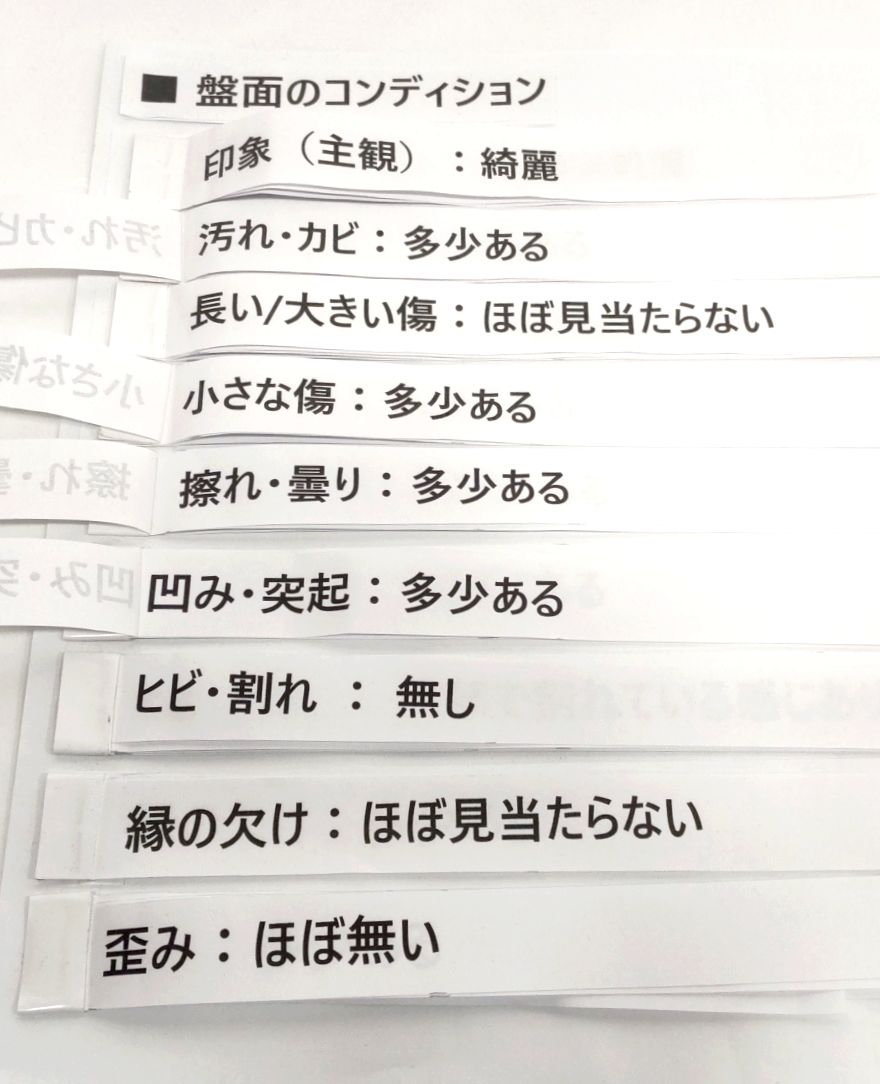 ■ 盤面のコンディション
印象（主観）：綺麗
汚れ・カビ：多少ある
長い/大きい傷：ほぼ見当たらない
小さな傷：多少ある
擦れ・曇り：多少ある
凹み・突起：多少ある
ヒビ・割れ ： 無し
縁の欠け：ほぼ見当たらない
歪み：ほぼ無い